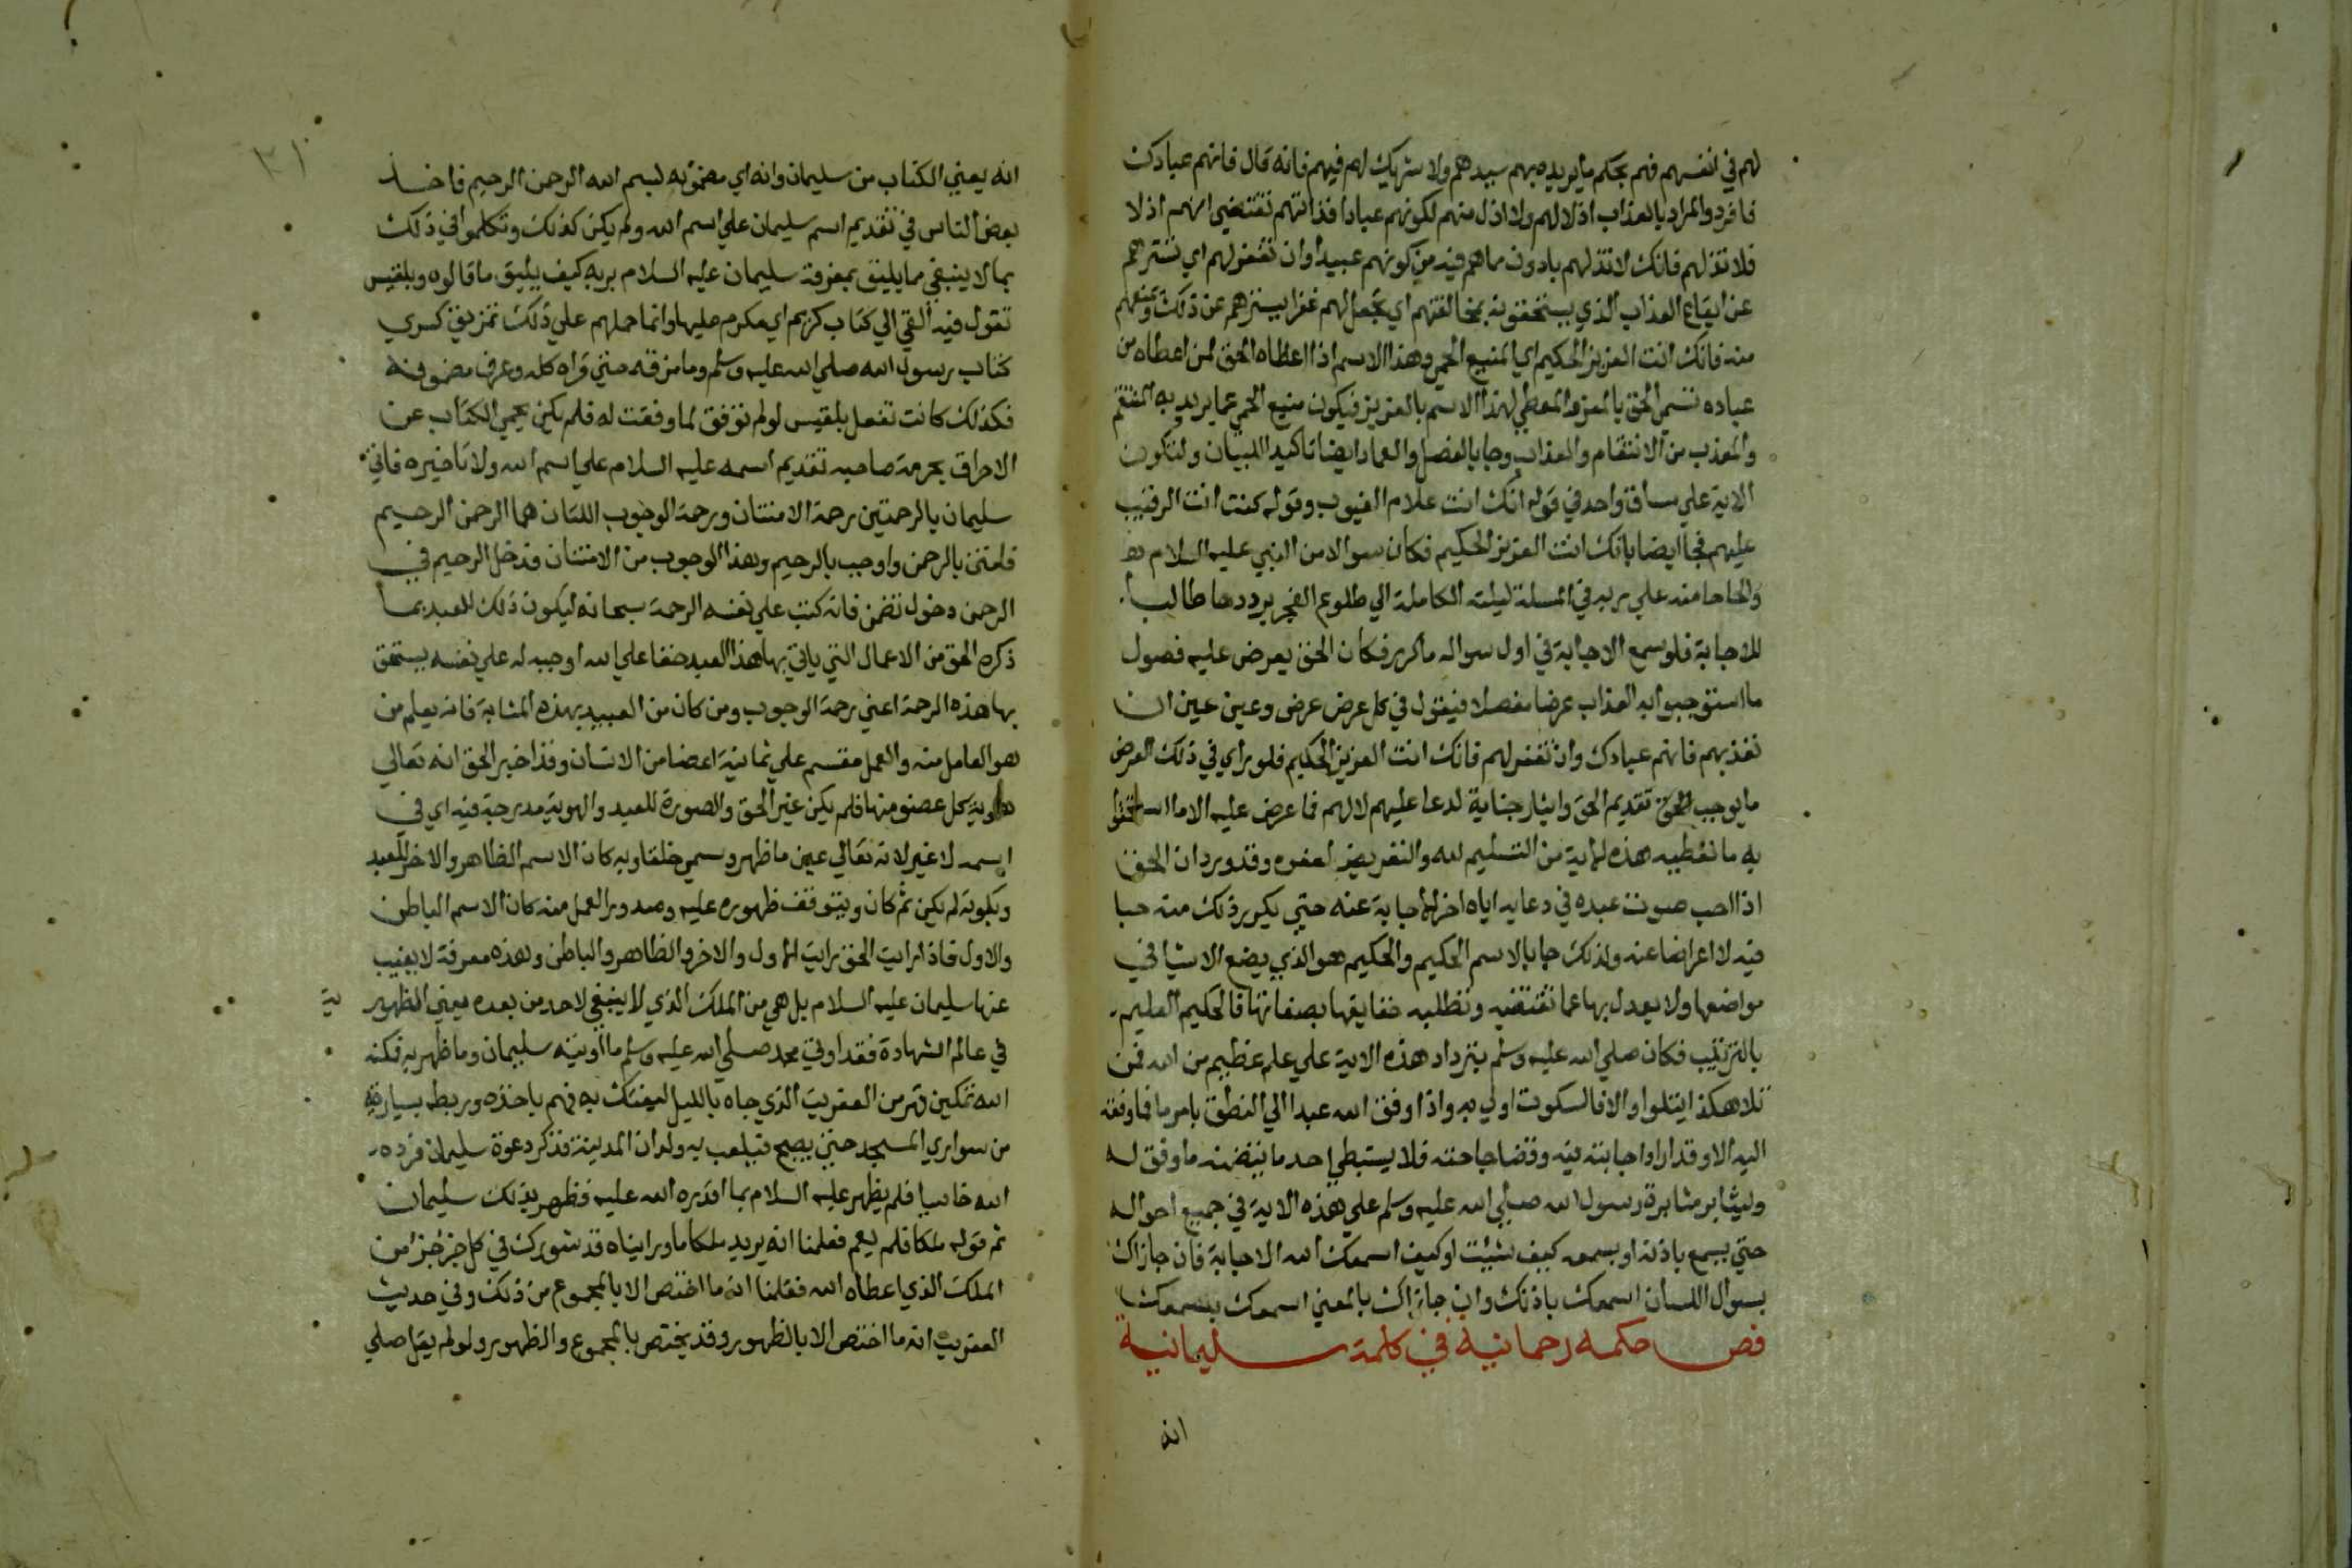 لهم في انفسهم فهم بحكم ما يريده بهم سيدهم ولا شريك لهم فيهم فانه قال فانهم عبادك
فافرد والمراد بالعذاب اذلالهم ولا اذل منهم لكونهم عبادا فذاتهم تقتضي انهم اذلا
فلا تذلهم فانك لا تذلهم بادون مما هم فيه من كونهم عبيدا وان تغفر لهم اي تسترهم
عن ايقاع العذاب الذي يستحقونه بمخالفتهم اي تجعل لهم غفرا يسترهم عن ذلك ويمنعهم
منه فانك انت العزيز الحكيم اي المنيع الحمي وهذا الاسم اذا اعطاه الحق لمن اعطاه من
عباده تسمي الحق بالمعز والمعطي لهذا الاسم بالعزيز فيكون منيع الحمي عما يريد به المنتقم
والمعذب من الانتقام والعذاب وجا بالفصل والعماد ايضا تاكيد اللبيان ولتكون
الاية علي مساق واحد في قوله انك انت علام الغيوب وقوله كنت انت الرقيب
عليهم فجا ايضا بانك انت العزيز الحكيم فكان سوالا من النبي عليه السلام
والحاحا منه علي ربه في المسلة ليلته الكاملة الي طلوع الفجر يرددها طالبا
للاجابة فلو سمع الاجابة في اول سواله ما كرر فكان الحق يعرض عليه فصول
ما استوجبوا به العذاب عرضا مفصلا فيقول في كل عرض عرض وعين عين ان
تعذبهم فانهم عبادك وان تغفر لهم فانك انت العزيز الحكيم فلو راي في ذلك العرض
ما يوجب الحق تقديم الحق وايثار جنابة لدعا عليهم لا لهم فما عرض عليه الا ما استحقوا
به ما تعطيه هذه الاية من التسليم لله والتعريض لعفوه وقد ورد ان الحق
اذا احب صوت عبده في دعايه اياه اخر الاجابة عنه حتي يكرر ذلك منه حبا
فيه لا اعراضا عنه ولذلك جا بالاسم الحكيم والحكيم هو الذي يضع الاشيا في
مواضعها ولا يعدل بها عما تقتضيه وتطلبه حقايقها بصفاتها فالحكيم العليم
بالترتيب فكان صلي الله عليه وسلم بترداد هذه الاية علي علم عظيم من الله فمن
تلا هكذا يتلوا والا فالسكوت اولي به واذا وفق الله عبدا الي النطق بامر ما فما وفقه
اليه الا وقد اراد اجابته فيه وقضا حاجته فلا يستبطي احد ما يتضمنه ما وفق له
وليثابر مثابرة رسول الله صلي الله عليه وسلم علي هذه الاية في جميع احواله
حتي يسمع باذنه او بسمعه كيف شيت او كيف اسمعك الله الاجابة فان جازاك
بسوال اللسان اسمعك باذنك وان جازاك بالمعني اسمعك بسمعك
فص حكمه رحمانيه في كلمة سليمانية
انه
انه يعني الكتاب من سليمان وانه اي مضمونه لبسم الله الرحمن الرحيم فاخذ
بعض الناس في تقديم اسم سليمان علي اسم الله ولم يكن كذلك وتكلموا في ذلك
بما لا ينبغي مما يليق بمعرفة سليمان عليه السلام بربه كيف يليق ما قالوه وبلقيس
تقول فيه القي الي كتاب كريم اي مكرم عليها وانما حملهم علي ذلك تمزيق كسري
كتاب رسول الله صلي الله عليه وسلم وما مزقه حتي قراه كله وعرف مضمونه
فكذلك كانت تفعل بلقيس لو لم توفق لما وفقت له فلم يكن يحمي الكتاب عن
الاحراق بحرمة صاحبه تقديم اسمه عليه السلام علي اسم الله ولا تاخيره فاتي
سليمان بالرحمتين رحمة الامتنان ورحمة الوجوب اللتان هما الرحمن الرحيم
فامتن بالرحمن واوجب بالرحيم وهذا الوجوب من الامتنان فدخل الرحيم في
الرحمن دخول تضمن فانه كتب علي نفسه الرحمة سبحانه ليكون ذلك للعبد بما
ذكره الحق من الاعمال التي ياتي بها هذا العبد حقا علي الله اوجبه له علي نفسه يستحق
بها هذه الرحمة اعني رحمة الوجوب ومن كان من العبيد بهذه المثابة فانه يعلم من
هو العامل منه والعمل مقسم علي ثمانية اعضا من الانسان وقد اخبر الحق انه تعالي
هوية كل عضو منها فلم يكن غير الحق والصورة للعبد والهوية مدرجة فيه اي في
اسمه لا غير لانه تعالي عين ما ظهر وسمي خلقا وبه كان الاسم الظاهر والاخر للعبد
وبكونه لم يكن ثم كان وبتوقف ظهوره عليه وصدور العمل منه كان الاسم الباطن
والاول فاذا رايت الحق رايت الاول والاخر والظاهر والباطن وهذه معرفة لا يغيب
عنها سليمان عليه السلام بل هي من الملك الذي لا ينبغي لاحد من بعده يعني الظهور به
في عالم الشهادة فقد اوتي محمد صلي الله عليه وسلم ما اوتيه سليمان وما ظهر به فمكنه
الله تمكين قهر من العفريت الذي جاه بالليل ليفتك به فهم باخذه وربطه بسارية
من سواري المسجد حتي يصبح فيلعب به ولدان المدينة فذكر دعوة سليمان فرده
الله خاسيا فلم يظهر عليه السلام بما اقدره الله عليه فظهر بذلك سليمان
ثم قوله ملكا فلم يعم فعلمنا انه يريد ملكا ما وراينأه قد شورك في كل جز جز من
الملك الذي اعطاه الله فعلمنا انه ما اختص الا بالمجموع من ذلك وفي حديث
العفريت انه ما اختص الا بالظهور وقد يختص بالمجموع والظهور ولو لم يقل صلي